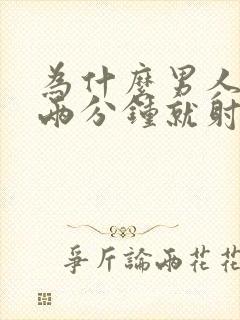 為什麼男人
兩分鐘就射
爭斤論兩花花